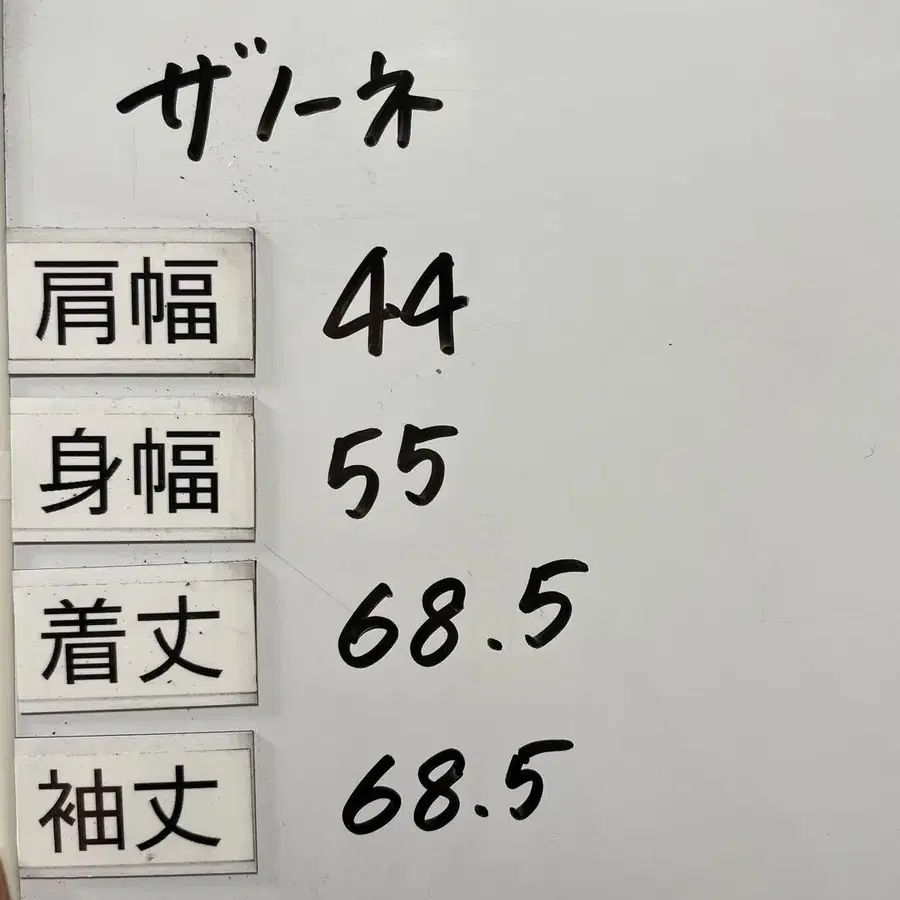 ザノーネ
肩幅 44
身幅 55
着丈 68.5
袖丈 68.5